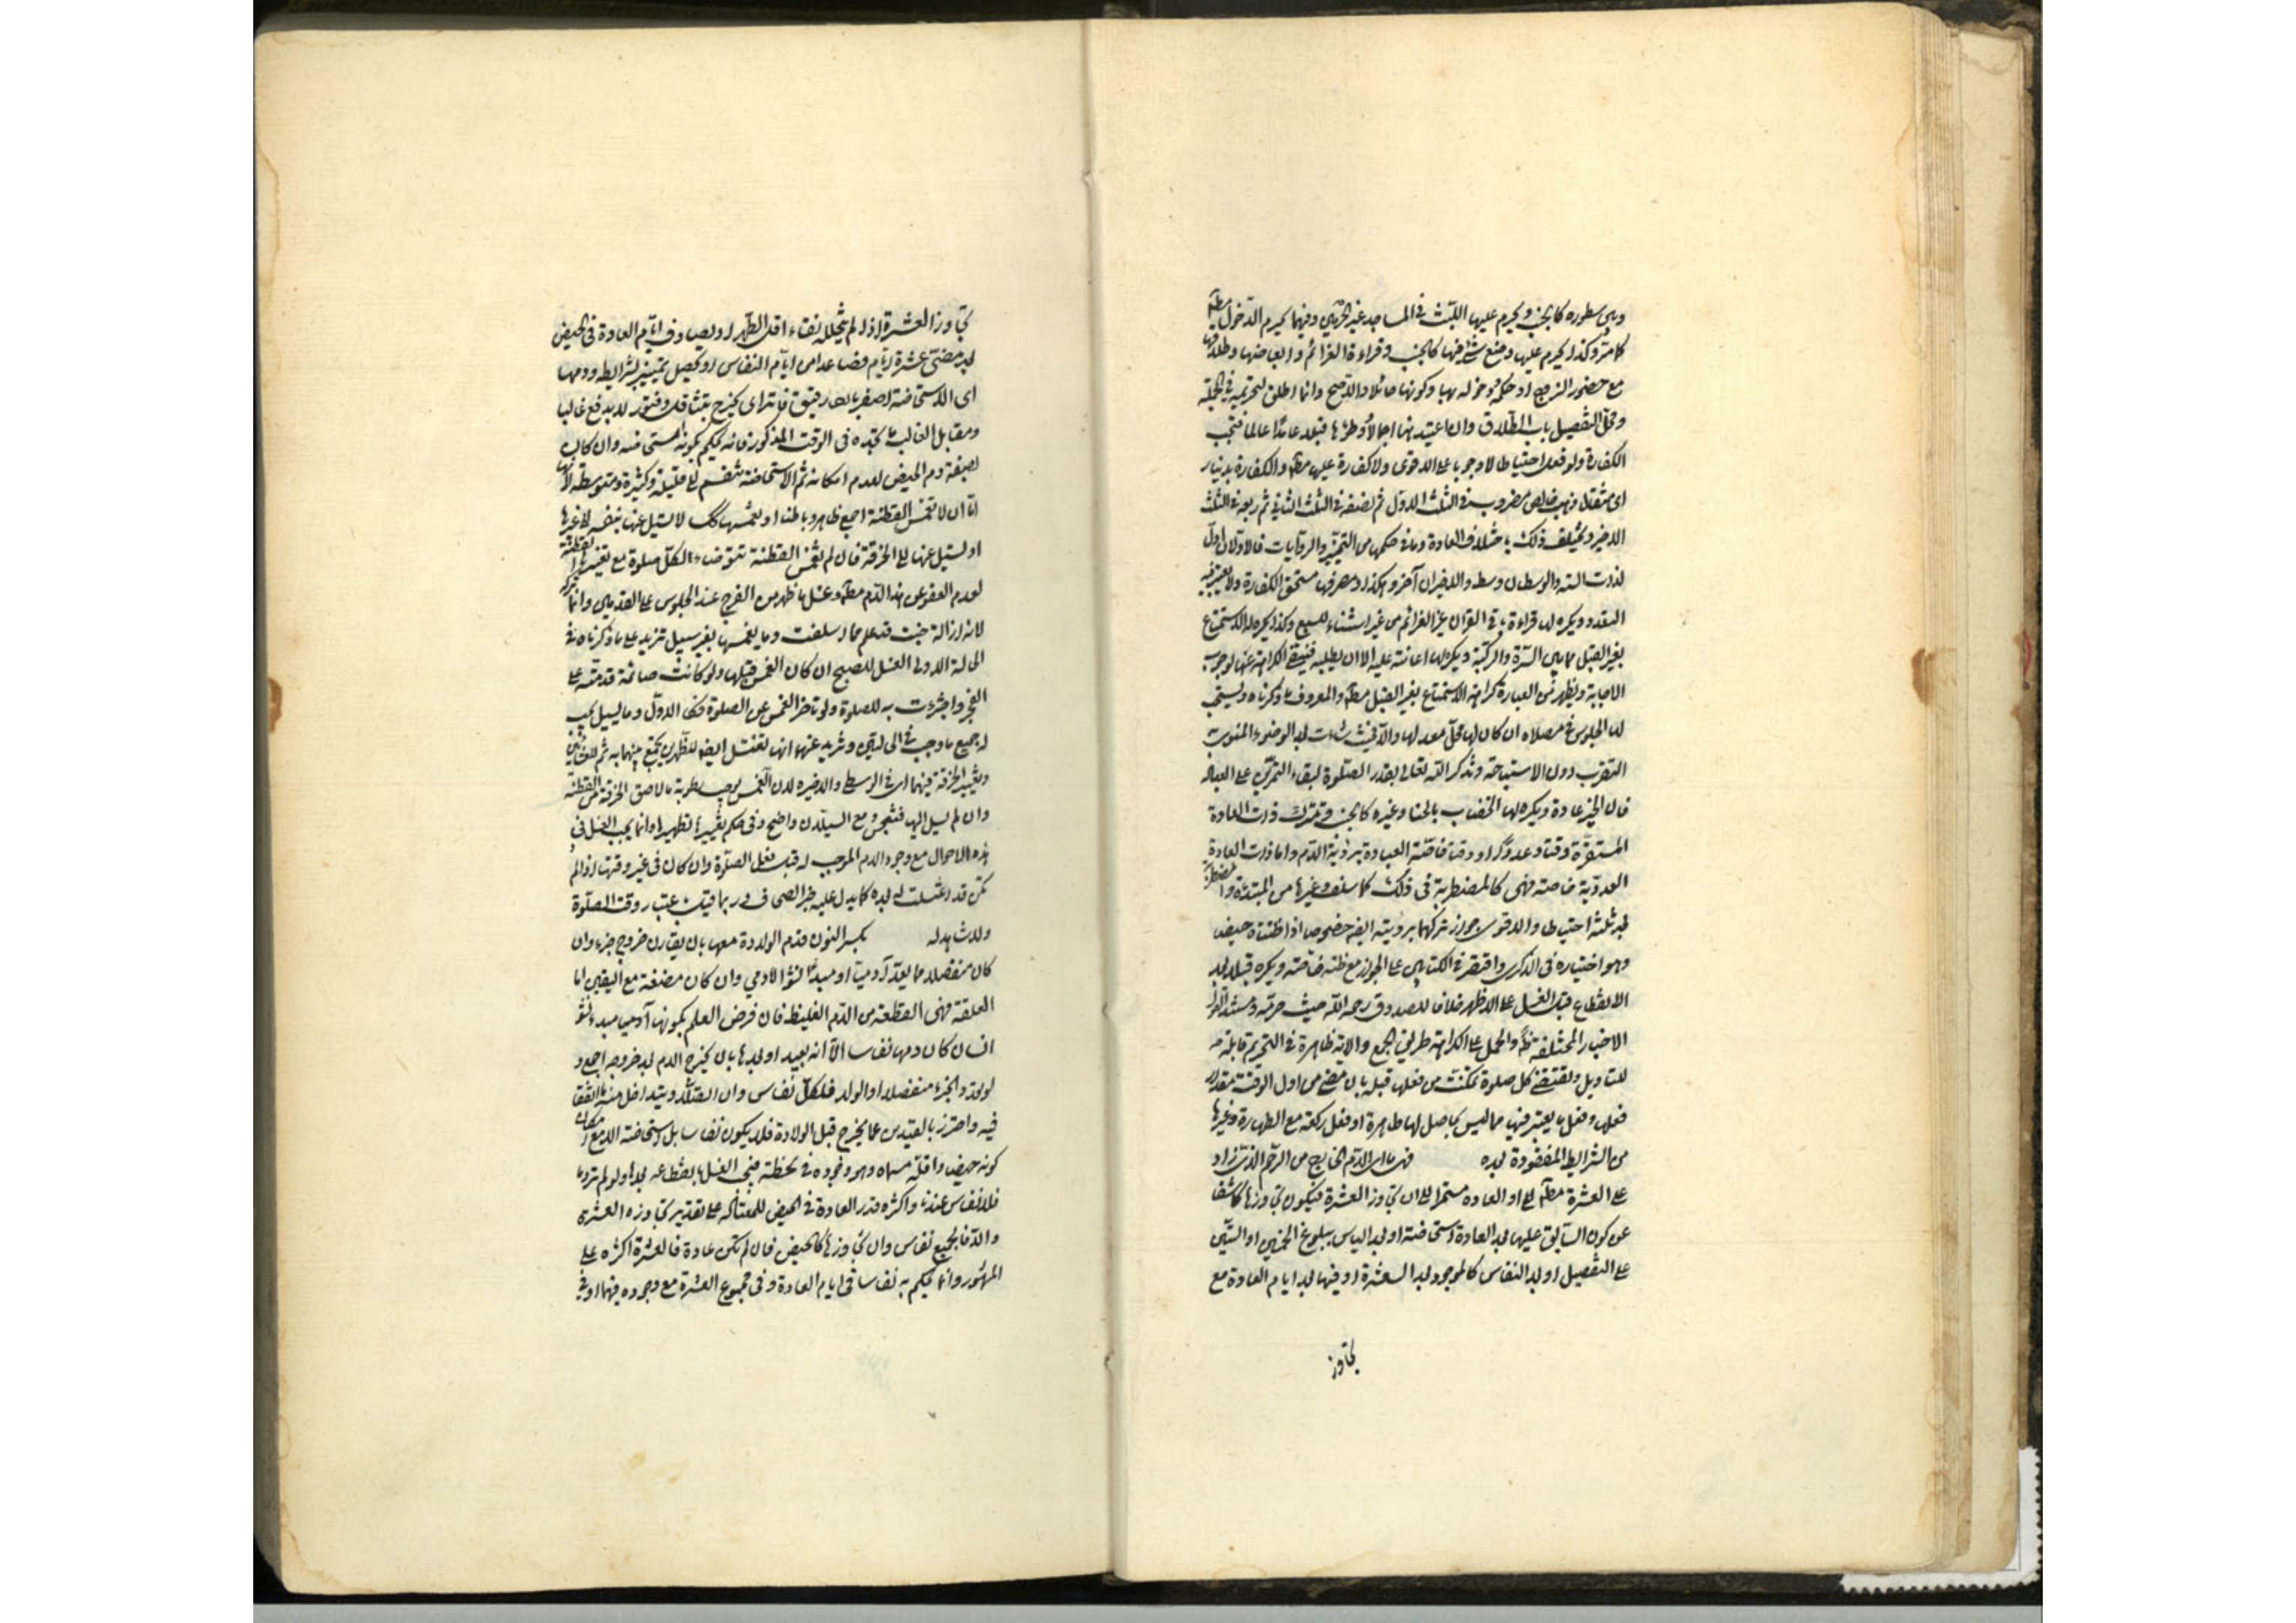 وبين سطوره كالجنب ويحرم عليها اللبث في المساجد غير الحرمين وفيهما يحرم الدخول مطلقا
كما مر وكذا يحرم عليها وضع شئ فيها كالجنب وقراءة العزائم وابعاضها وطلاقها
مع حضور الزوج او حكمه ودخوله بها وكونها حائلا والا صح وانما اطلق لتحريمه في الجملة
ومحل التفصيل باب الطلاق وان اعتيد هنا اجمالا ووطؤها قبلا عامدا عالما فتجب
الكفارة ولو فعل احتياطا لا وجوبا على الاقوى ولا كفارة عليها مطلقا والكفارة بدينار
اى مثقال ذهب خالص مضروب في الثلث الاول ثم نصفه في الثلث الثاني ثم ربعه في الثلث
الاخير ويختلف ذلك باختلاف العادة وما في حكمها من التمييز والروايات فالاولان اول
لذات الستة والوسطان وسط والاخيران آخر وهكذا ومصرفها مستحق الكفارة ولا يعتبر فيه
التعدد ويكره لها قراءة باقي القرآن غير العزائم من غير استثناء للسبع وكذا يكره له الاستمتاع
بغير القبل مما بين السرة والركبة ويكره لها اعانته عليه الا ان يطلبه فتنتفي الكراهة عنها لوجوب
الاجابة ويظهر من العبارة كراهة الاستمتاع بغير القبل مطلقا والمعروف ما ذكرناه ويستحب
لها الجلوس في مصلاها ان كان لها محل معد لها والا فحيث شاءت بعد الوضوء المنوي به
التقرب دون الاستباحة وتذكر الله تعالى بقدر الصلوة لبقاء التمرين على العبادة
فان الخير عادة ويكره لها الخضاب بالحنا وغيره كالجنب وتترك ذات العادة
المستقرة وقتا وعددا او وقتا خاصة العبادة برؤية الدم واما ذات العادة
العددية خاصة فهى كالمضطربة في ذلك كما سلف وغيرها من المبتدئة والمضطربة
بعد ثلثة احتياطا والاقوى جواز تركهما برؤيته ايضا خصوصا اذا ظنتاه حيضا
وهو اختياره في الذكرى واقتصر في الكتابين على الجواز مع ظنه خاصة ويكره قبلا بعد
الانقطاع قبل الغسل على الاظهر خلافا للصدوق رحمه الله حيث حرمه ومستند القول
الاخبار المختلفة ظاهرا والحمل على الكراهة طريق الجمع والاية ظاهرة في التحريم قابلة
للتاويل وتقضي كل صلوة تمكنت من فعلها قبله بان مضى من اول الوقت مقدار
فعلها وفعل ما يعتبر فيها مما ليس بحاصل لها طاهرة او فعل ركعة مع الطهارة وغيرها
من الشرايط المفقودة بعده فهى ما اى الدم الخارج من الرحم الذي زاد
على العشرة مطلقا او العادة مستمرا الى ان تجاوز العشرة فيكون تجاوزها كاشفا
عن كون السابق عليها بعد العادة استحاضة او بعد الياس ببلوغ الخمسين او الستين
على التفصيل او بعد النفاس كالموجود بعد العشرة او فيها بعد ايام العادة مع
تجاوز
تجاوز العشرة اذا لم يتخلله نقاء اقل الطهر او يصادف ايام العادة في الحيض
بعد مضى عشرة ايام فصاعدا من ايام النفاس او يحصل تمييز بشرايطه ودمها
اى الاستحاضة اصفر بارد رقيق فاتر اى يخرج بتثاقل وفتور لا بدفع غالبا
ومقابل الغالب ما تجده في الوقت المذكور فانه يحكم بكونه استحاضة وان كان
بصفة دم الحيض لعدم امكانه ثم الاستحاضة تنقسم الى قليلة وكثيرة ومتوسطة لانها
اما ان لا تغمس القطنة اجمع ظاهرا وباطنا او تغمسها كذلك لا تسيل عنها بنفسه الى غيرها
او تسيل عنها الى الخرقة فان لم تغمس القطنة تتوضأ لكل صلوة مع تغييرها القطنة
لعدم العفو عن هذا الدم مطلقا وغسل ما ظهر من الفرج عند الجلوس على القدمين وانما تركه
لانه ازالة خبث قد علم مما سلف وما يغمسها بغير سيل تزيد على ما ذكرناه في
الحالة الاولى الغسل للصبح ان كان الغمس قبلها ولو كانت صائمة قدمته على
الفجر واجتزءت به للصلوة ولو تاخر الغمس عن الصلوة فكالاول وما يسيل يجب
له جميع ما وجب في الحالتين وتزيد عنهما انها تغتسل ايضا للظهرين تجمع بينهما به ثم للعشائين
وتغيير الخرقة فيهما اى في الوسطى والاخيرة لان الغمس يوجب رطوبة ما لاصق الخرقة من القطنة
وان لم يسل اليها فتنجس ومع السيلان واضح وفي حكم تغييرها تطهيرها وانما يجب الغسل في
هذه الاحوال مع وجود الدم الموجب له قبل فعل الصلوة وان كان في غير وقتها اذا لم
تكن قد اغتسلت له بعده كما يدل عليه خبر الصحاف وربما قيل باعتبار وقت الصلوة
ولا شاهد له بكسر النون فدم الولادة معها بان يقارن خروج جزء وان
كان منفصلا مما يعد آدميا او مبدأ نشو الادمي وان كان مضغة مع اليقين اما
العلقة فهى القطعة من الدم الغليظ فان فرض العلم بكونها آدمي مبدء نشو
انسان كان دمها نفاسا الا انه بعيد او بعدها بان يخرج الدم بعد خروجه اجمع و
لو تعدد الجزء منفصلا او الولد فلكل نفاس وان اتصلا ويتداخل منه ما اتفقا
فيه واحترز بالقيدين عما يخرج قبل الولادة فلا يكون نفاسا بل استحاضة الا مع امكان
كونه حيضا واقله مسماه وهو وجوده في لحظة فيجب الغسل بانقطاعه بعدها ولو لم تر دما
فلا نفاس عندنا واكثره قدر العادة في الحيض للمعتادة على تقدير تجاوز العشرة
والا فالجميع نفاس وان تجاوزها كالحيض فان لم تكن عادة فالعشرة اكثره على
المشهور وانما يحكم به نفاسا في ايام العادة وفي مجموع العشرة مع وجوده فيهما او في